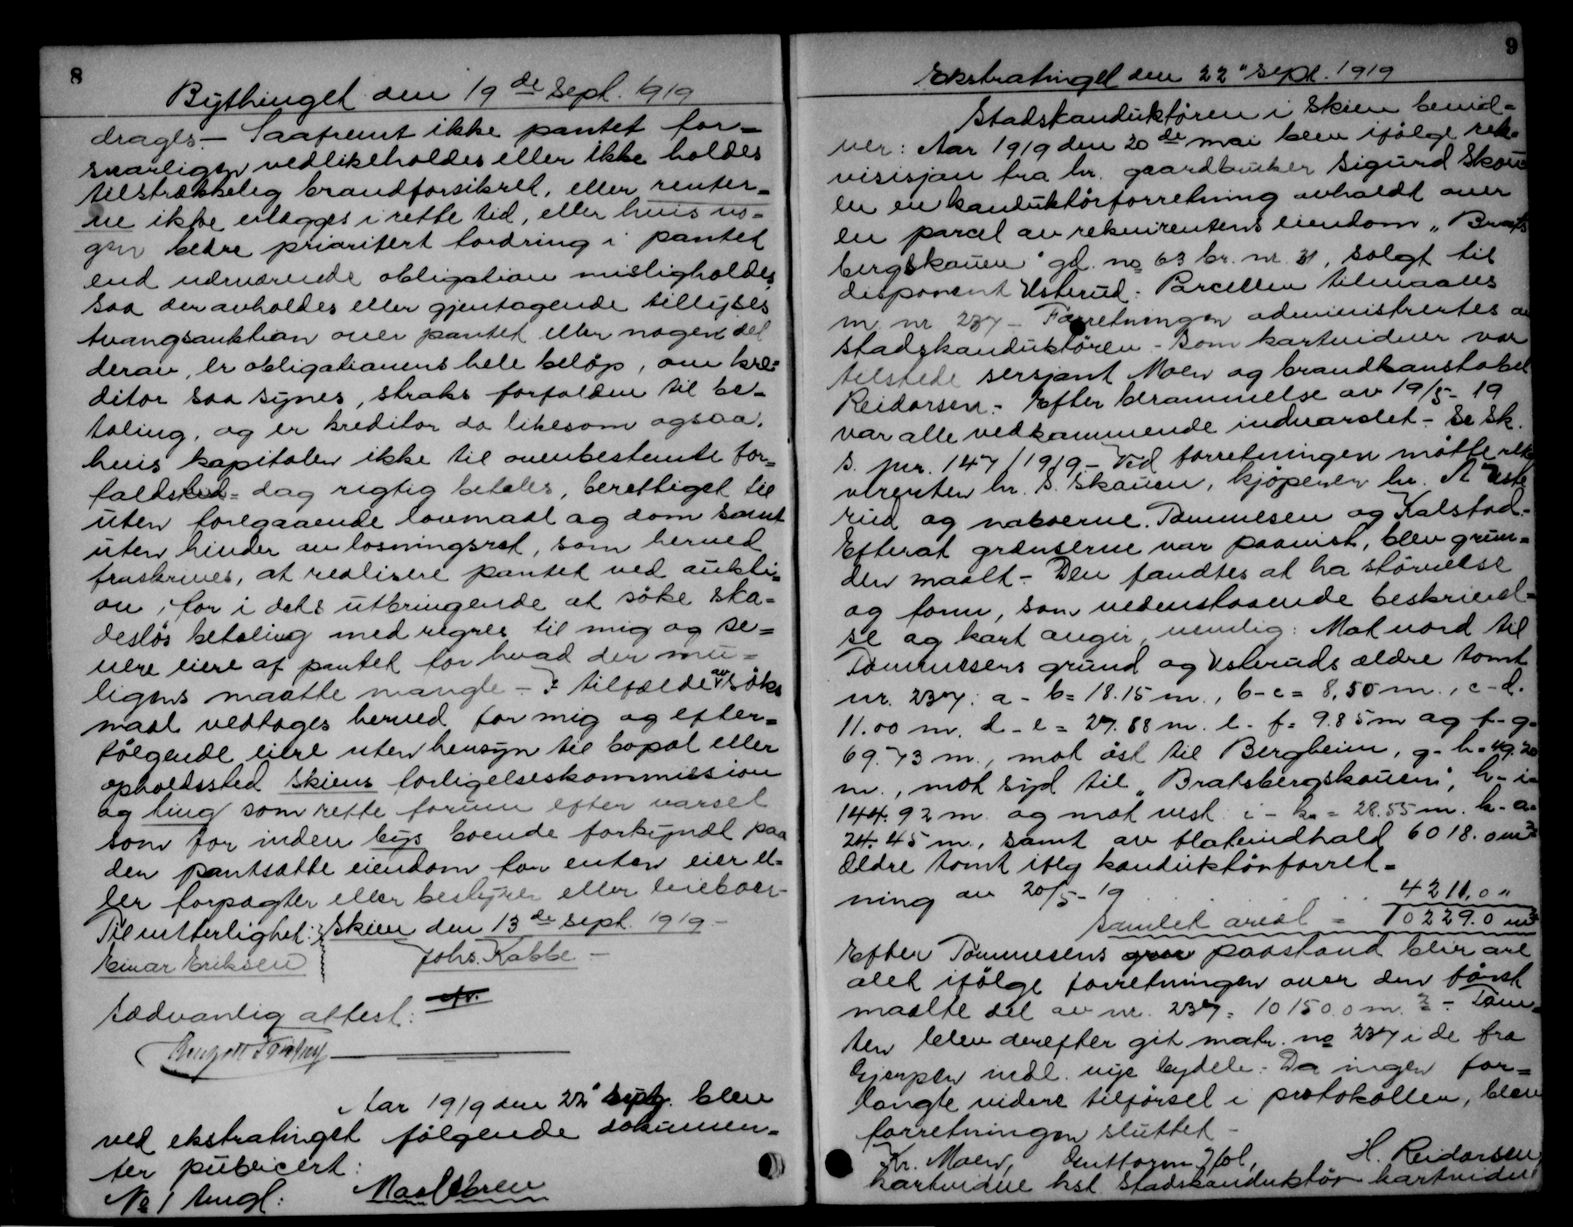 8
Bythinget den 19de Sept. 1919
drages. - Saafremt ikke pantet for-
svarligen vedlikeholdes eller ikke holdes
tilstrækkelig brandforsikret, eller renter-
ne ikke erlægges i rette tid, eller hvis no-
gen bedre prioritert fordring i pantet
end nærværende obligation misligholdes,
saa der avholdes eller gjentagende tillyses
tvangsauktion over pantet eller nogen del
derav, er obligationens hele beløp, om kre-
ditor saa synes, straks forfalden til be-
taling, og er kreditor da likesom ogsaa,
hvis kapitalen ikke til ovenbestemte for-
faldsdag rigtig betales, berettiget til
uten foregaaende lovmaal og dom samt
uten hinder av løsningsret, som herved
fraskrives, at realisere pantet ved aukti-
on, for i dets utbringende at søke ska-
desløs betaling med regres til mig og se-
nere eiere af pantet for hvad der mu-
ligens maatte mangle - I tilfælde av søks
maal vedtages herved for mig og efter-
følgende eiere uten hensyn til bopæl eller
opholdssted Skiens forligelseskommission
og ting som rette forum efter varsel
som for inden bys boende forkyndt paa
den pantsatte eiendom for enten eier el-
ler forpagter eller bestyrer eller leieboer -
Til vitterlighet: Skien den 13de Sept. 1919 -
Einar Eriksen Johs. Kabbe -
Sædvanlig attest:
Aar 1919 den 22" Septr. blev
ved ekstratinget følgende dokumen-
ter publicert:
No 1 tingl: Maalebrev
9
Ekstratinget den 22" Sept. 1919
Stadskonduktøren i Skien bevid-
ner: Aar 1919 den 20de mai blev ifølge rek-
visisjon fra hr. gaardbruker Sigurd Skou
en en konduktørforretning avholdt over
en parcel av rekvirentens eiendom "Brats
bergskauen" gd. no 63 br. nr. 31, solgt til
disponent Usterud. Parcellen tilmaales
m. nr. 237 - Forretningen administrertes av
stadskonduktøren. - Som kartvidner var
tilstede sersjant Moen og brandkonstabel
Reidarsen. - Efter berammelse av 19/5-19
var alle vedkommende indvarslet - Se Sk.
S. jnr. 147/1919. - Ved forretningen møtte rek
virenten hr. S. Skauen, kjøperen hr. A Uste
rud og naboerne Tommesen og Kalstad. -
Efterat grænserne var paavist, blev grun-
den maalt. - Den fandtes at ha størrelse
og form, som nedenstaaende beskrivel-
se og kart angir, nemlig: Mot nord til
Tommesens grund og Usteruds ældre tomt
nr. 237: a - b = 18.15 m., b-c = 8,50 m., c-d.
11.00 m. d-e = 27.88 m. e-f = 9.85m og f-g =
69.73 m., mot øst til Bergheim, g-h = 49.20
m., mot syd til "Bratsbergskauen", h-i =
144.92 m og mot vest: i-k = 28.55 m. k-a =
24.45 m., samt av flateindhald 6018.0 m²
Ældre tomt iflg konduktørforret-
ning av 20/5-19 . . . . . 4211,0 "
Samlet areal = 10229.0 m²
Efter Tommesens paastand blir are
alet ifølge forretningen over den først
maalte del av nr. 237: 10150.0 m.² - Tom-
ten blev derefter git matr. no 237 i de fra
Gjerpen indl. nye bydele. Da ingen for-
langte videre tilførsel i protokollen, blev
forretningen sluttet -
Kr. Moen, Guttorm Hol, H. Reidarsen
kartvidne kst. Stadskonduktør kartvidne